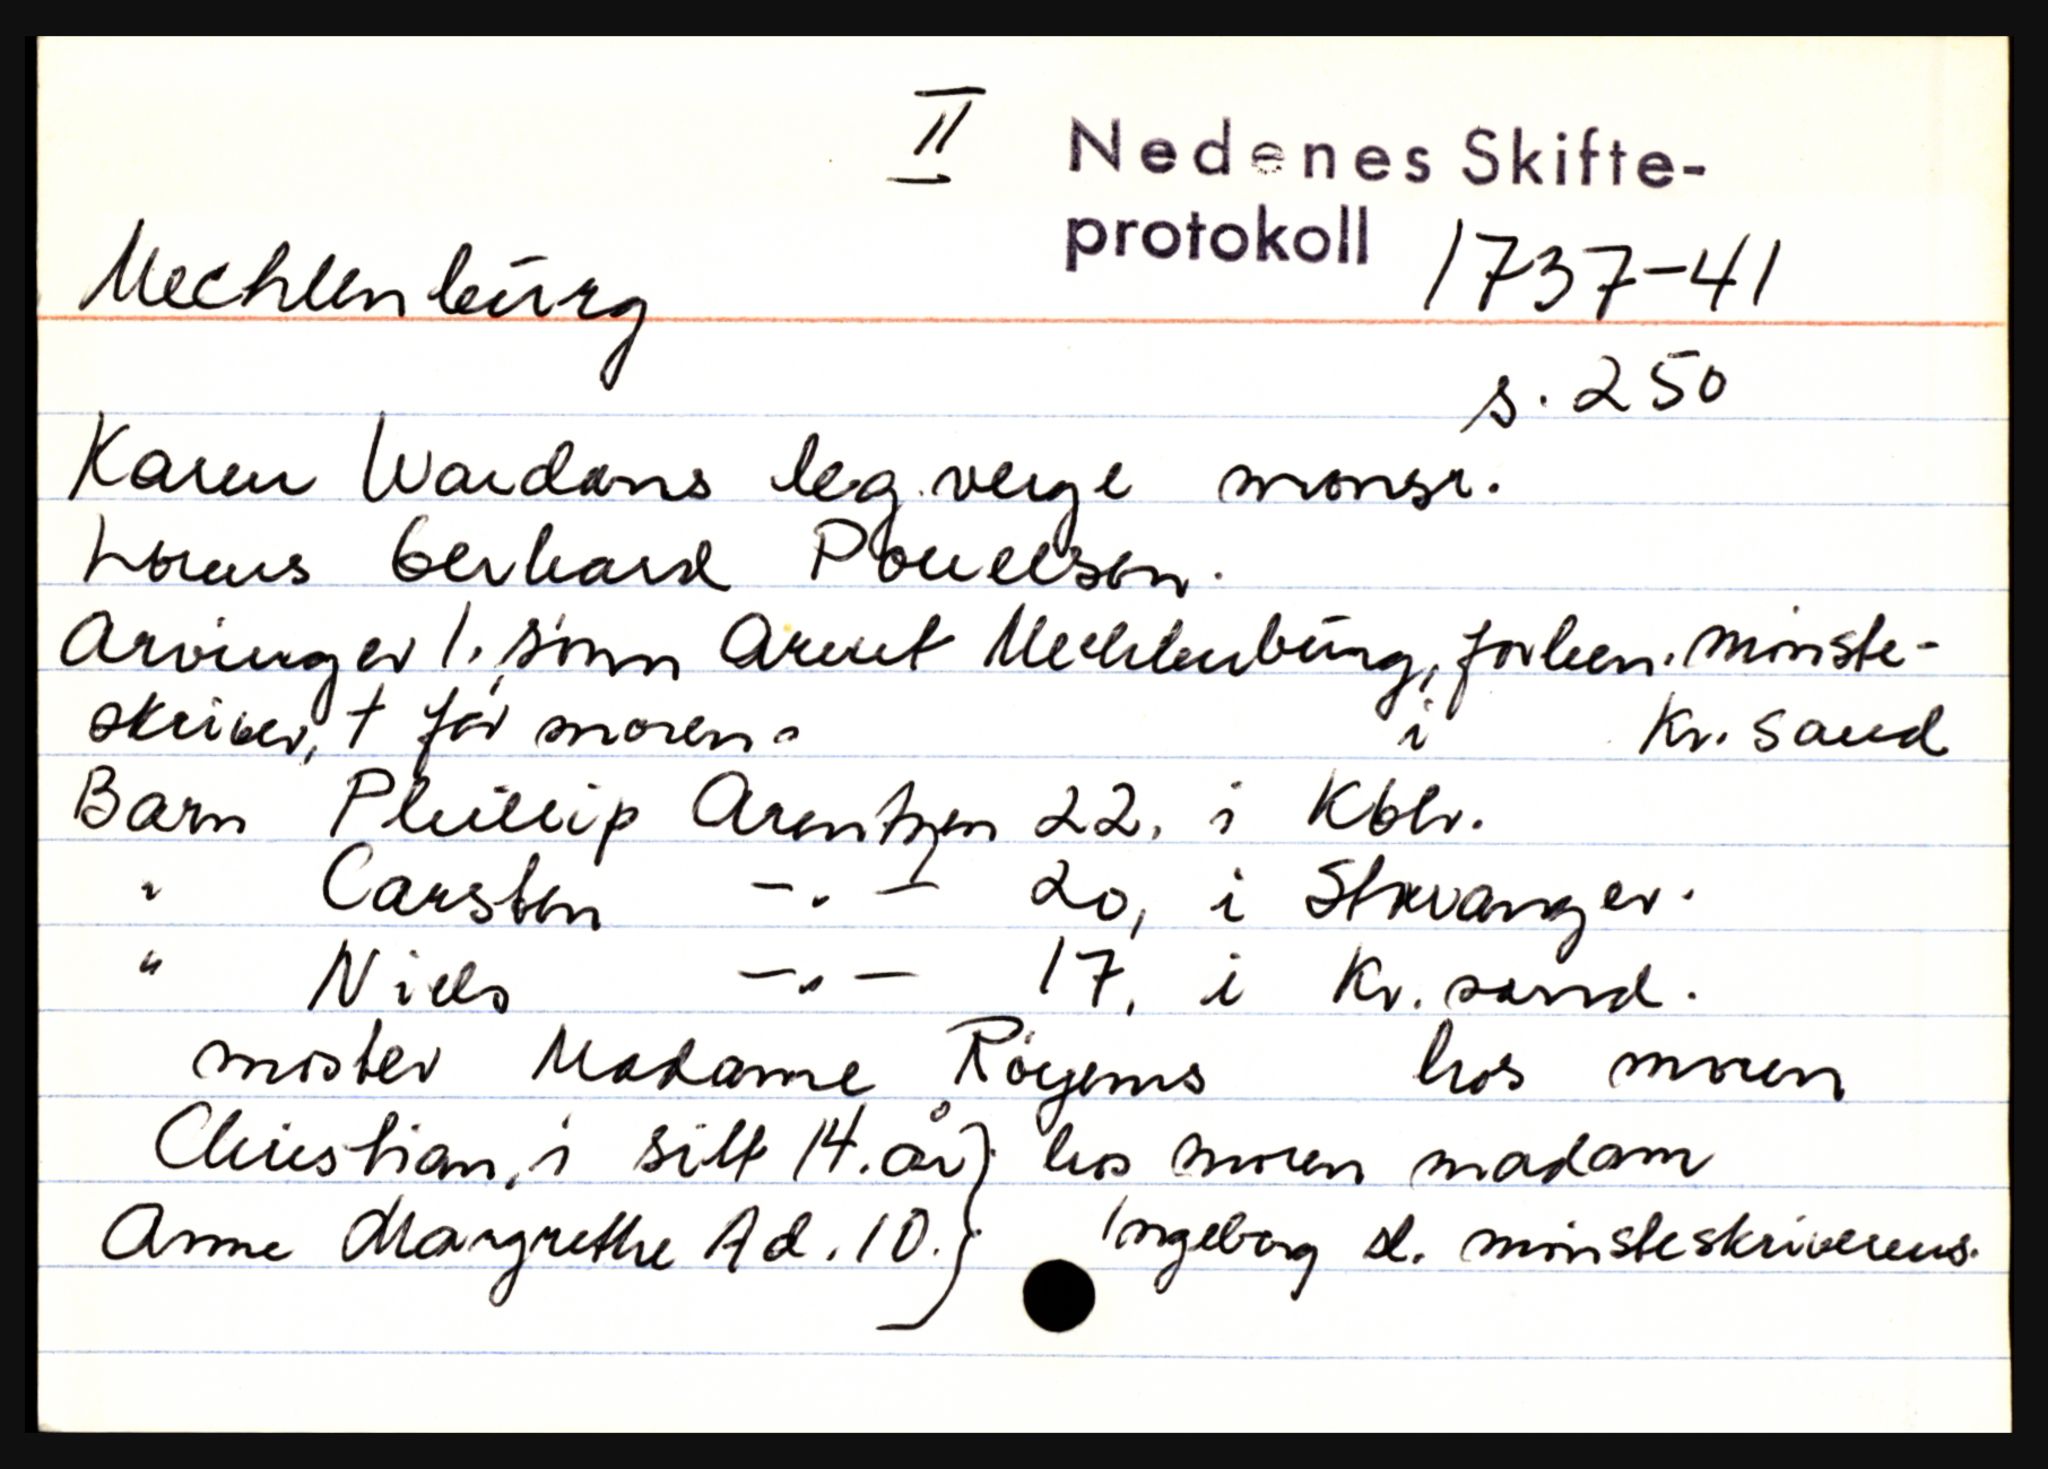 II Nedenes Skifte-
protokoll 1737-41
Mechlenbūrg
s. 250
Karen Wardans leg. verge monsr.
Lorens Gerhard Pouelsen.
Arvinger 1. sønn Arent Mechlenbūrg, forhen. mønste-
skriver, † før moren. i Kr. sand
Barn Phillip Arentzen 22, i Kbhv.
" Carsten -"- 20, i Stavanger.
" Niels -"- 17, i Kr. sand.
moster Madame Röyems hos moren
Christian, i sitt 14. år } hos moren madam
Anne Margrethe Ad. 10. } Ingeborg sl. mønsteskriverens.